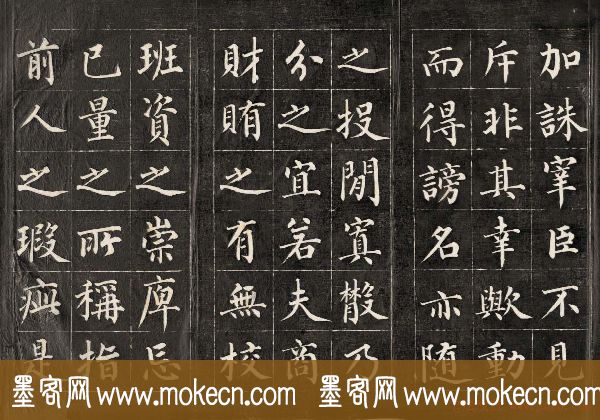 加誅宰臣不見
斥非其幸歟動
而得謗名亦随
之投閒寘散乃
分之宜若夫商
財賄之有無校
班資之崇庳忘
己量之所稱指
前人之瑕疵是
墨客网 www.mokecn.com 墨客网 www.mokecn.com